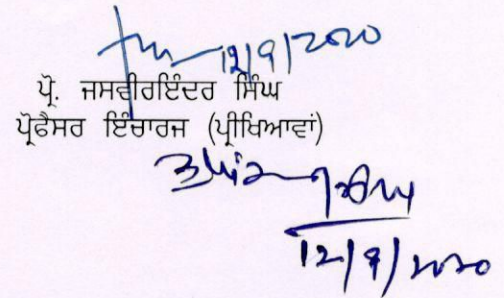 12/9/2020
ਪ੍ਰੋ. ਜਸਵੀਰਇੰਦਰ ਸਿੰਘ
ਪ੍ਰੋਫੈਸਰ ਇੰਚਾਰਜ (ਪ੍ਰੀਖਿਆਵਾਂ)
12/9/2020